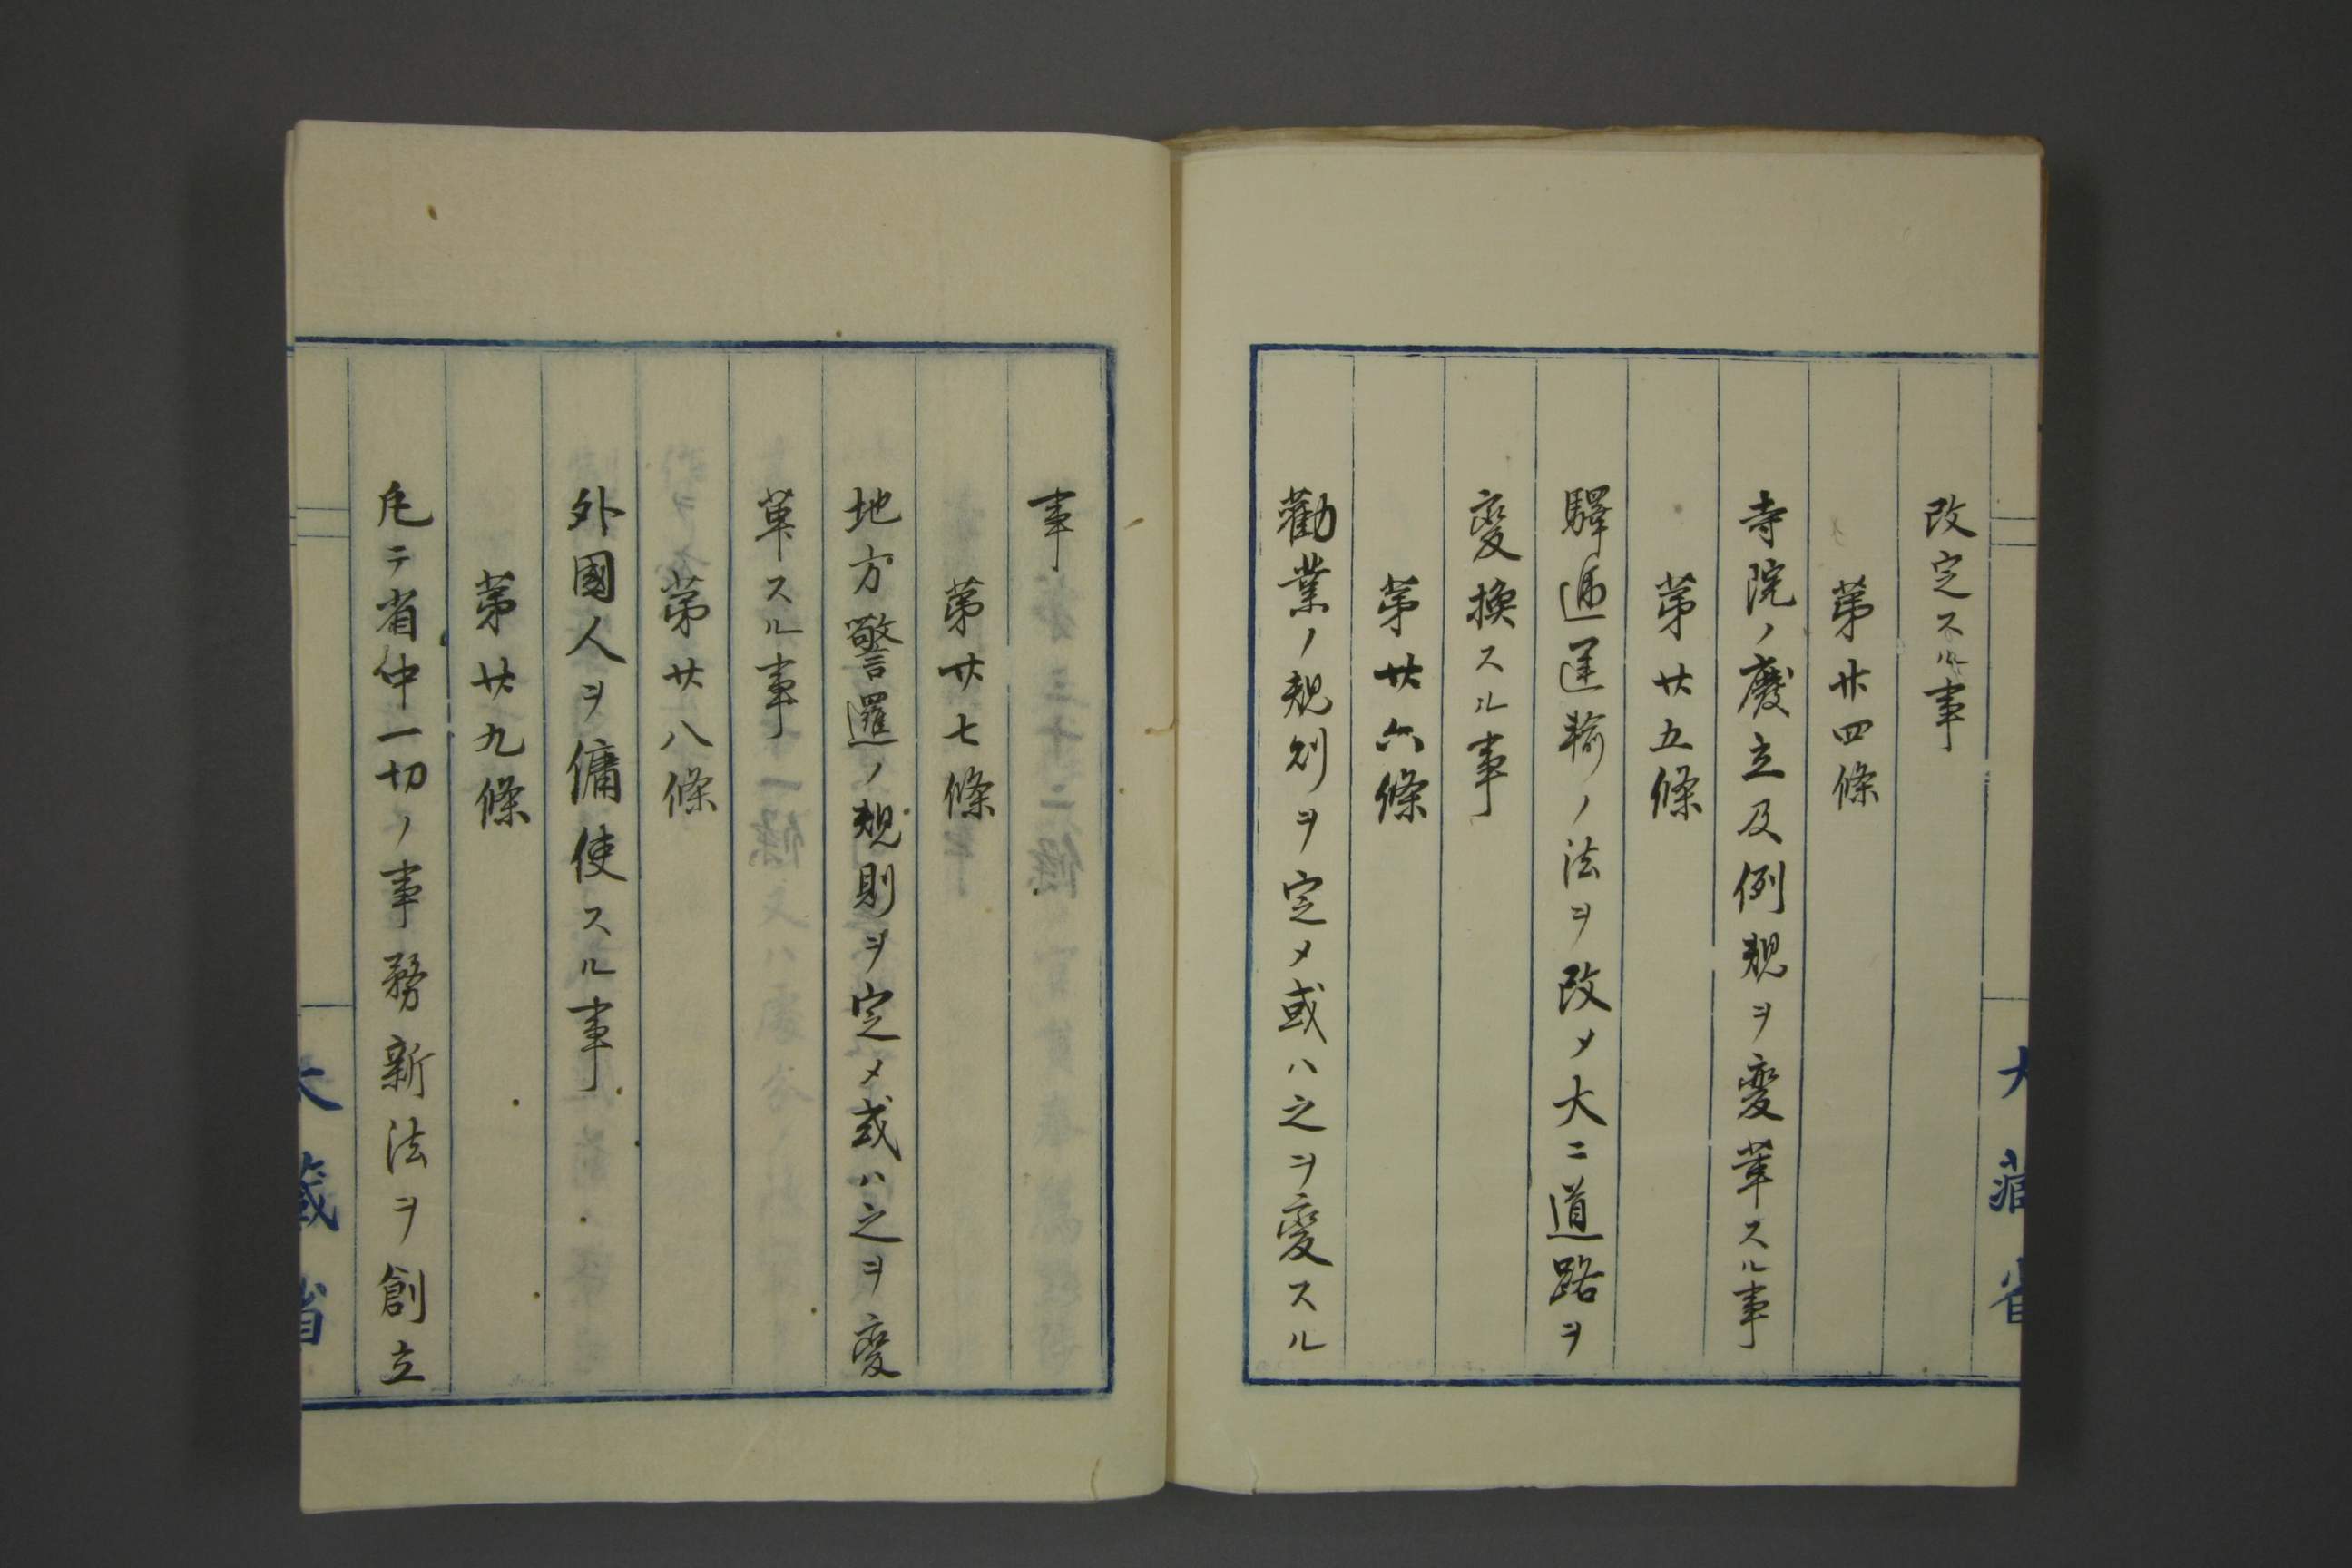 改定スル事
第廿四條
寺院ノ廢立及例規ヲ変革スル事
第廿五條
驛逓運輸ノ法ヲ改メ大ニ道路ヲ
変換スル事
第廿六條
勸業ノ規則ヲ定メ或ハ之ヲ変スル
大藏省
事
第廿七條
地方警邏ノ規則ヲ定メ或ハ之ヲ変
革スル事
第廿八條
外國人ヲ傭使スル事
第廿九條
凡テ省中一切ノ事務新法ヲ創立
大藏省